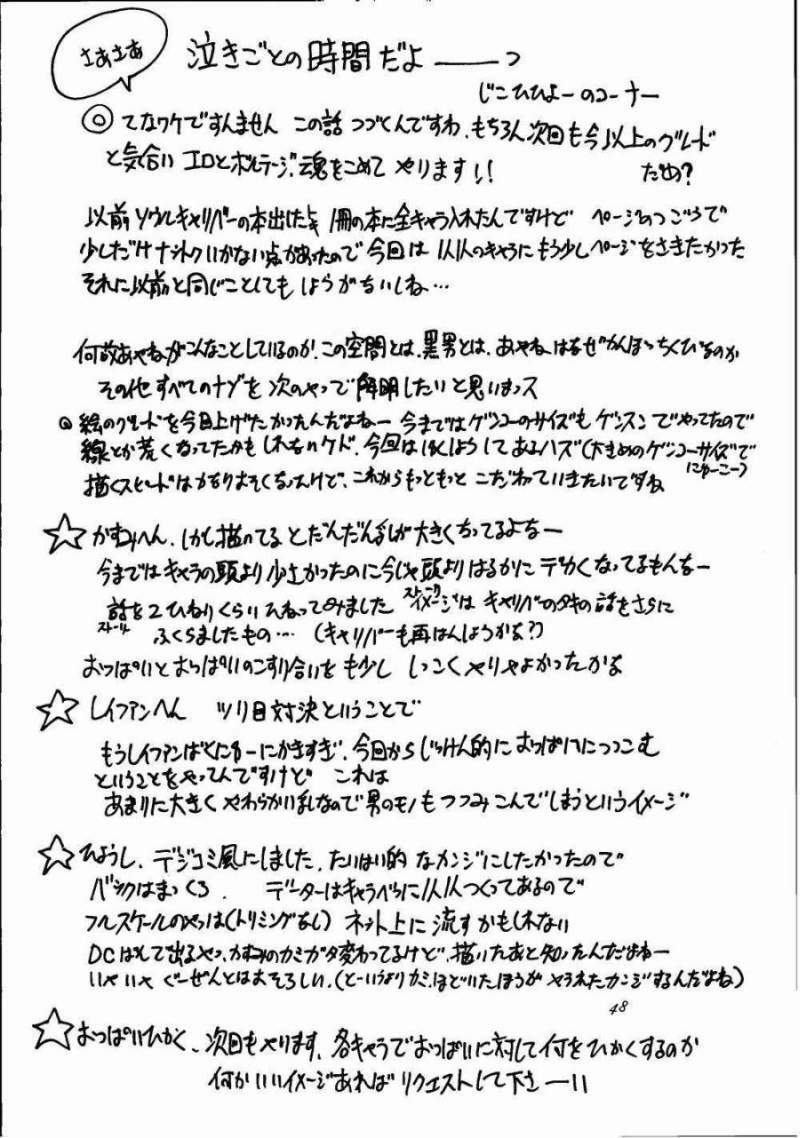 さぁさぁ
泣きごとの時間だよ——っ
じこひひょーのコーナー
◎ てなワケですんません この話 つづくんですわ、もちろん次回も今以上のグレード
と気合い エロとボルテージ、魂をこめて やります!!
だめ?
以前ソウルキャリバーの本出したとき 1冊の本に全キャラ入れたんですけど ページのつごうで
少しだけナットクいかない点があったので今回は 1人1人のキャラにもう少しページをさきたかった
それに以前と同じことしても しょうがないしね…
何故あやねがこんなことしているのか、この空間とは、黒男とは、あやねはなぜ
その他すべてのナゾを次のやつで解明したいと思いまっス
◎ 絵のグレードを今回上げたかったんだよねー 今まではゲンコーのサイズも ゲンスンでやってたので
線とか荒くなってたかもしれないケド、今回は してあるハズ(大きめのゲンコーサイズで
にゅーこー)
描くスピードはかなりおそくなったけど、これからもっともっと こだわっていきたいですね
☆ かすみへん、しかし描いてるとだんだん乳が大きくなってるよなー
今まではキャラの頭より少さかったのに今じゃ頭よりはるかに デカくなってるもんなー
話を2ひねりくらいひねってみました ストーリーイメージは キャリバーのタキの話をさらに
ストーリー
ふくらましたもの… (キャリバーも再はんしようかな?)
おっぱいとおっぱいのこすり合いをも少し しつこくやりゃよかったかな
☆ レイファンへん ツリ目対決ということで
もうレイファンばくにゅーにかきすぎ、今回からじっけん的におっぱいにつつこむ
ということをやってんですけど これは
あまりに大きく やわらかい乳なので男のモノもつつみこんでしまうというイメージ
☆ ひょうし、デジコミ風にしました、たいはい的 なカンジにしたかったので
バックはまっくろ、 データーはキャラべつに1人1人つくってあるので
フルスケールのやつは(トリミングなし) ネット上に流すかもしれない
DCはんで出るやつ、かすみのカミガタ変わってるけど、描いたあと知ったんだよねー
いやいや ぐーぜんとはおそろしい、(とーいうよりカミ、ほどいたほうが やられたカンジするんだよね)
48
☆ おっぱいひかく、次回もやります、各キャラでおっぱいに対して何をひかくするのか
何かいいイメージあれば リクエストして下さーいい